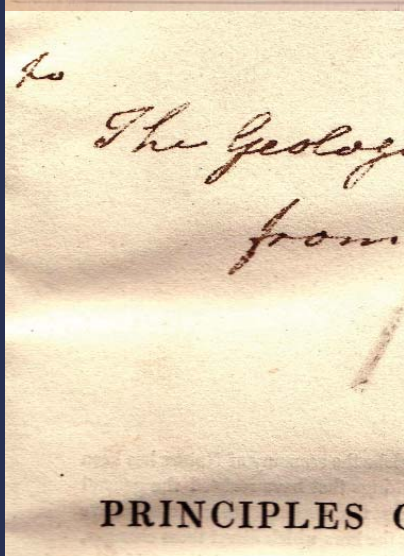 to
The Geolog
from
PRINCIPLES